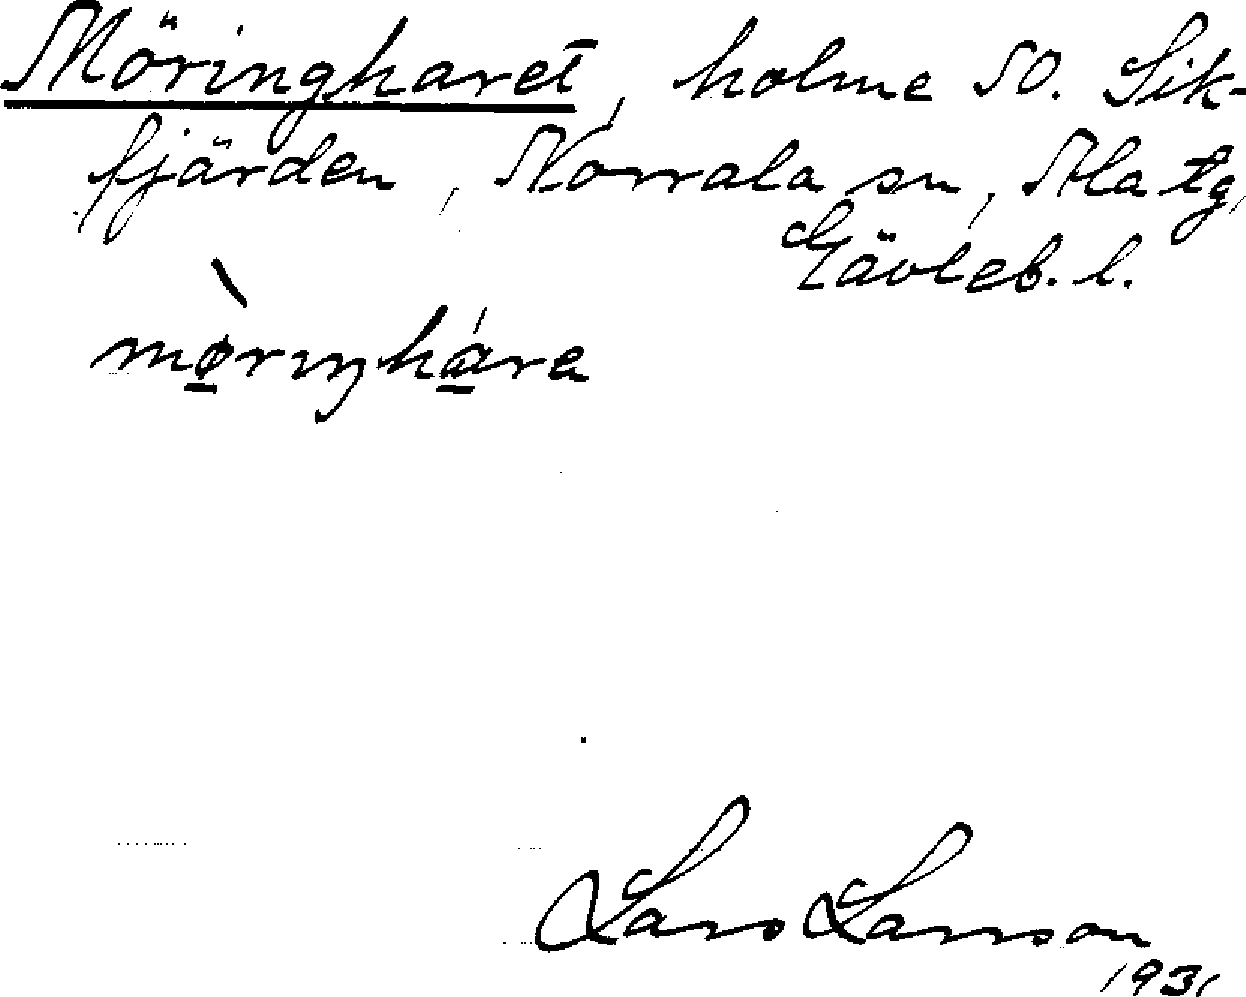 Möringharet, holme SO. Sik-
fjärden, Norrala sn, Ala tg,
Gävleb. l.
mø̱̀riŋhá̱ra
Lars Larsson
1931